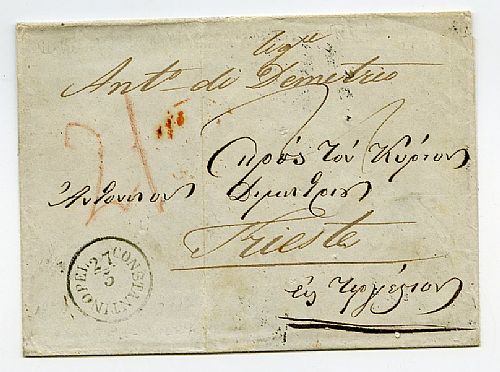 Sigre
Anto. di Demetrio
21
πρός τόν Κύριον
Αντώνιον Δημητρίου
Trieste
εἰς Τριέστιον
CONSTANTINOPEL
27
5